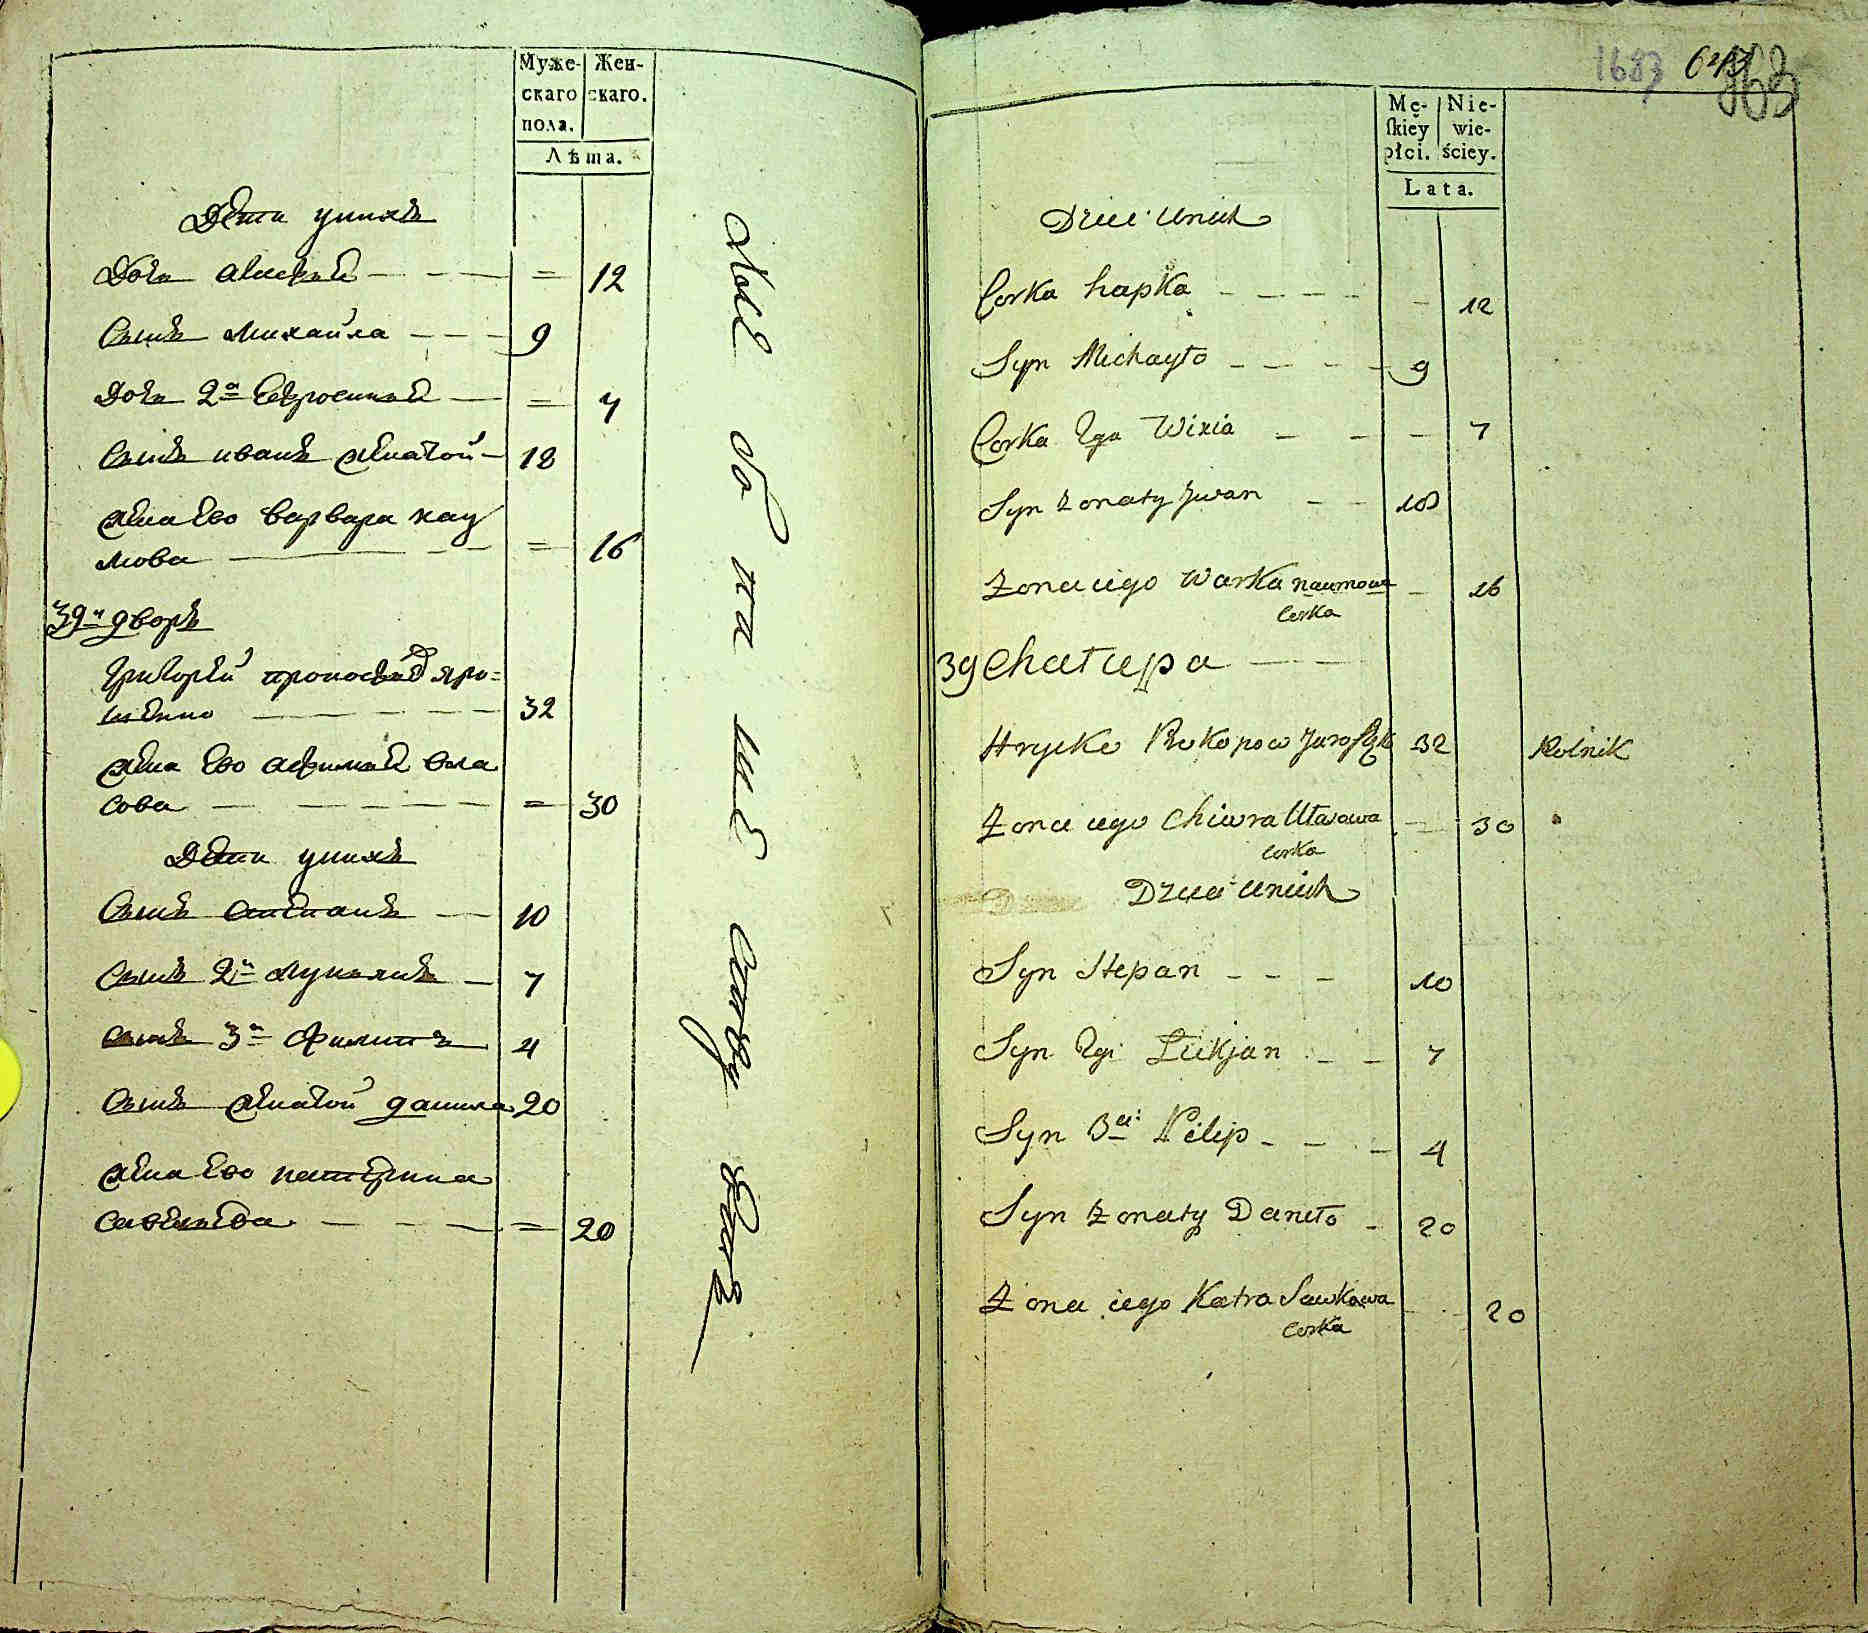 Муже-
скаго
пола.
Жен-
скаго.
Лѣта.
Дѣти унихъ
Дочь 12
Сынъ Михайла 9
Дочь 2я 7
Сынъ иванъ женатой 18
жена его варвара нау
мова 16
39й дворъ
григорей яро=
шенко 32
жена его афимья вла
сова 30
Дѣти унихъ
Сынъ степанъ 10
Сынъ 2й лукьянъ 7
сынъ 3й филипъ 4
Сынъ женатой данила 20
жена его катерина
савельева 20
1683
Mę-
skiey
płci.
Nie-
wie-
ściey.
Lata.
Dzieci unich
Corka hapka 12
Syn Michayło 9
Corka 2ga Wixia 7
Syn żonaty Jwan 18
żona iego Warka naumowa 16
Corka
39 Chałupa
Hrycko Prokopow 32 Rolnik
żona iego Chiwra Ułasowa 30
Corka
Dzieci unich
Syn Stepan 10
Syn 2gi Łukjan 7
Syn 3ci Pilip 4
Syn żonaty Daniło 20
żona iego Katra Sawkowa 20
Corka